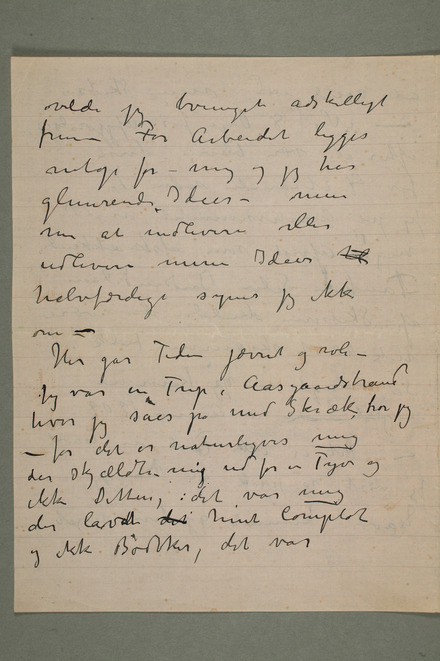 vilde jeg bringet adskilligt
frem – For Arbeidet ligges
for – mig og jeg har
glimrende Ideer – men
nu at indlevere eller
udlevere mine Ideer til
halvfærdige synes jeg ikke
om –
Her går Tiden jævnt og rol–
Jeg var en Trip i Aasgaardstrand
hvor jeg sáes på med Skræk, tror jeg
– for det er naturligvis mig
der skjældte mig ud for en Tyv og
ikke Ditten, i det var mig
der lavet det hint Complot
og ikk Bødtker, det var